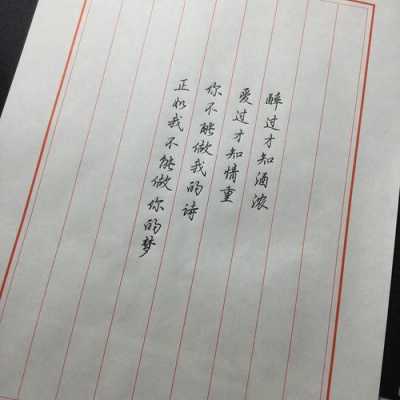 醉过才知酒浓
爱过才知情重
你不能做我的诗
正如我不能做你的梦